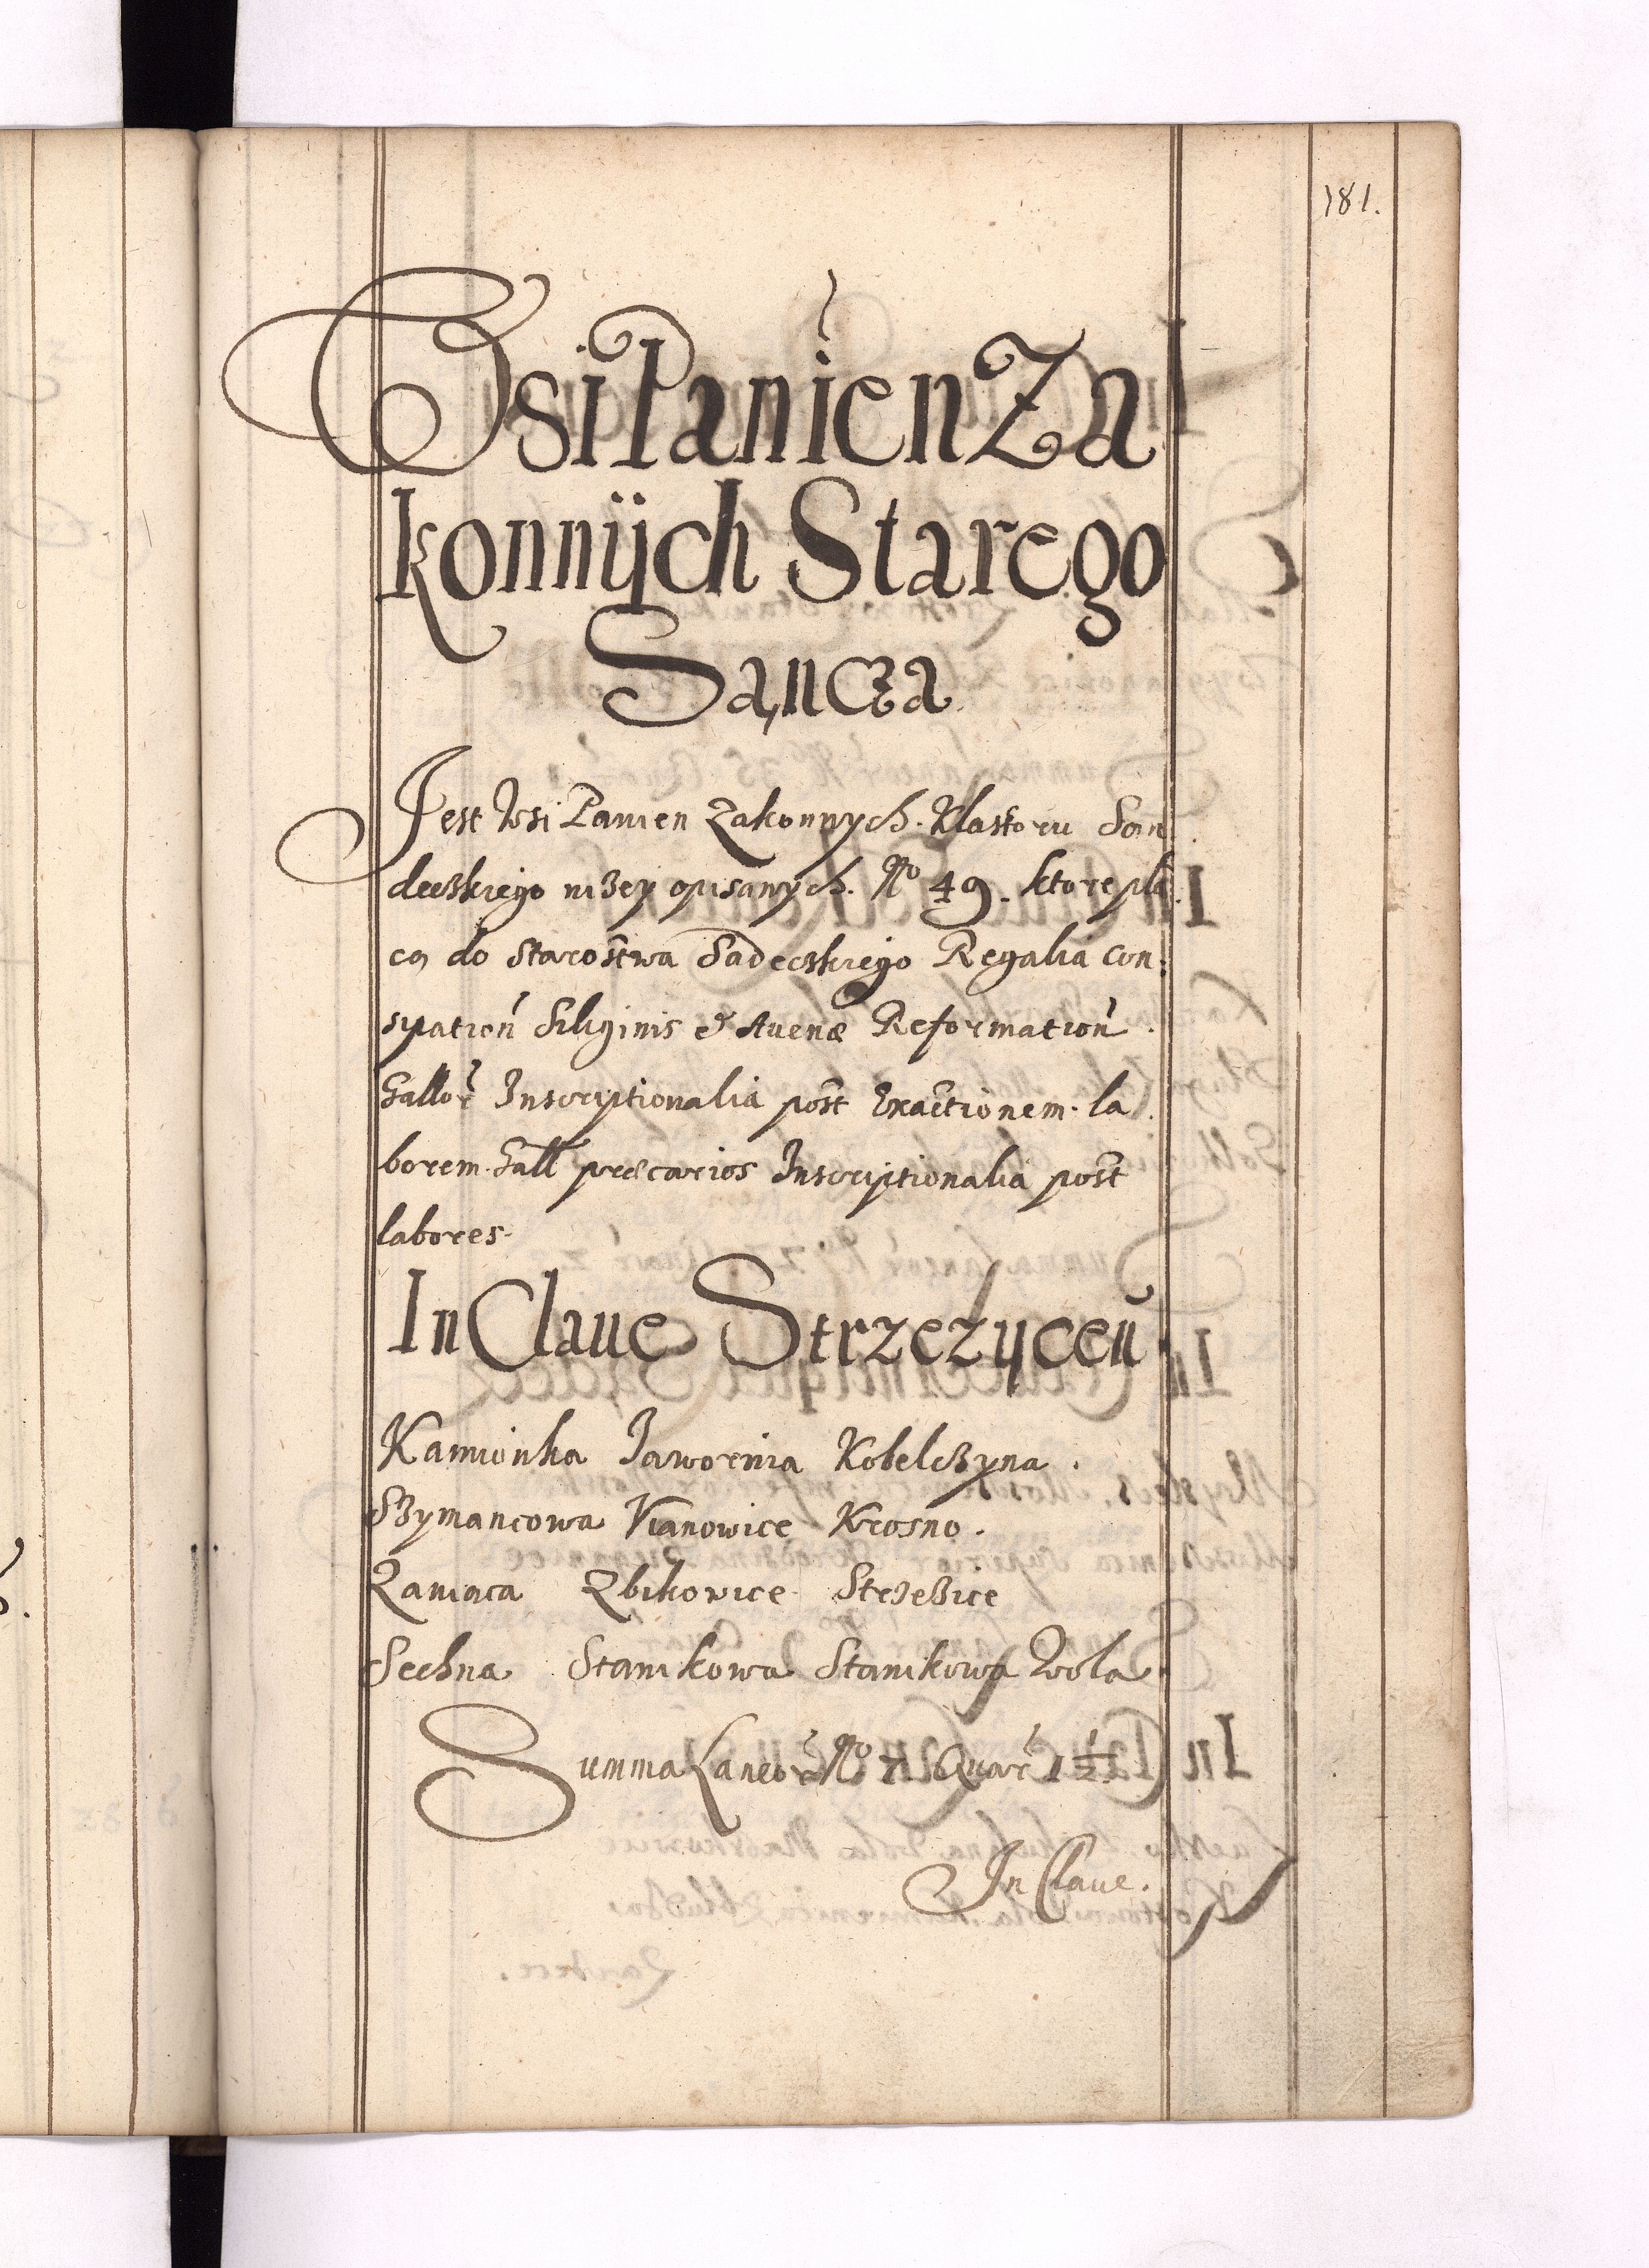 181.
Wsi Panien Za
konnÿch Starego
Sącza
Jest Wsi Panien Zakonnych. Klastoru San
deczkiego niżey opisanych. No 49. ktore pła
cą do Starostwa Sadeczkiego Regalia con:
sipation Siliginis et Auenæ Reformation
Gallor Inscriptionalia post Exactionem. la
borem. Gall præcarios Inscriptionalia post
labores.
In Claue Strzezÿcen
Kamionka Jawornia Kobelczyna.
Szymancowa Vianowice Krosno.
Zamiaca Zbikowice Strzeszice
Sechna Stanikowa Stanikowa Wola
Summa Laneor No 7. Quar 1 1/2.
In Claue.